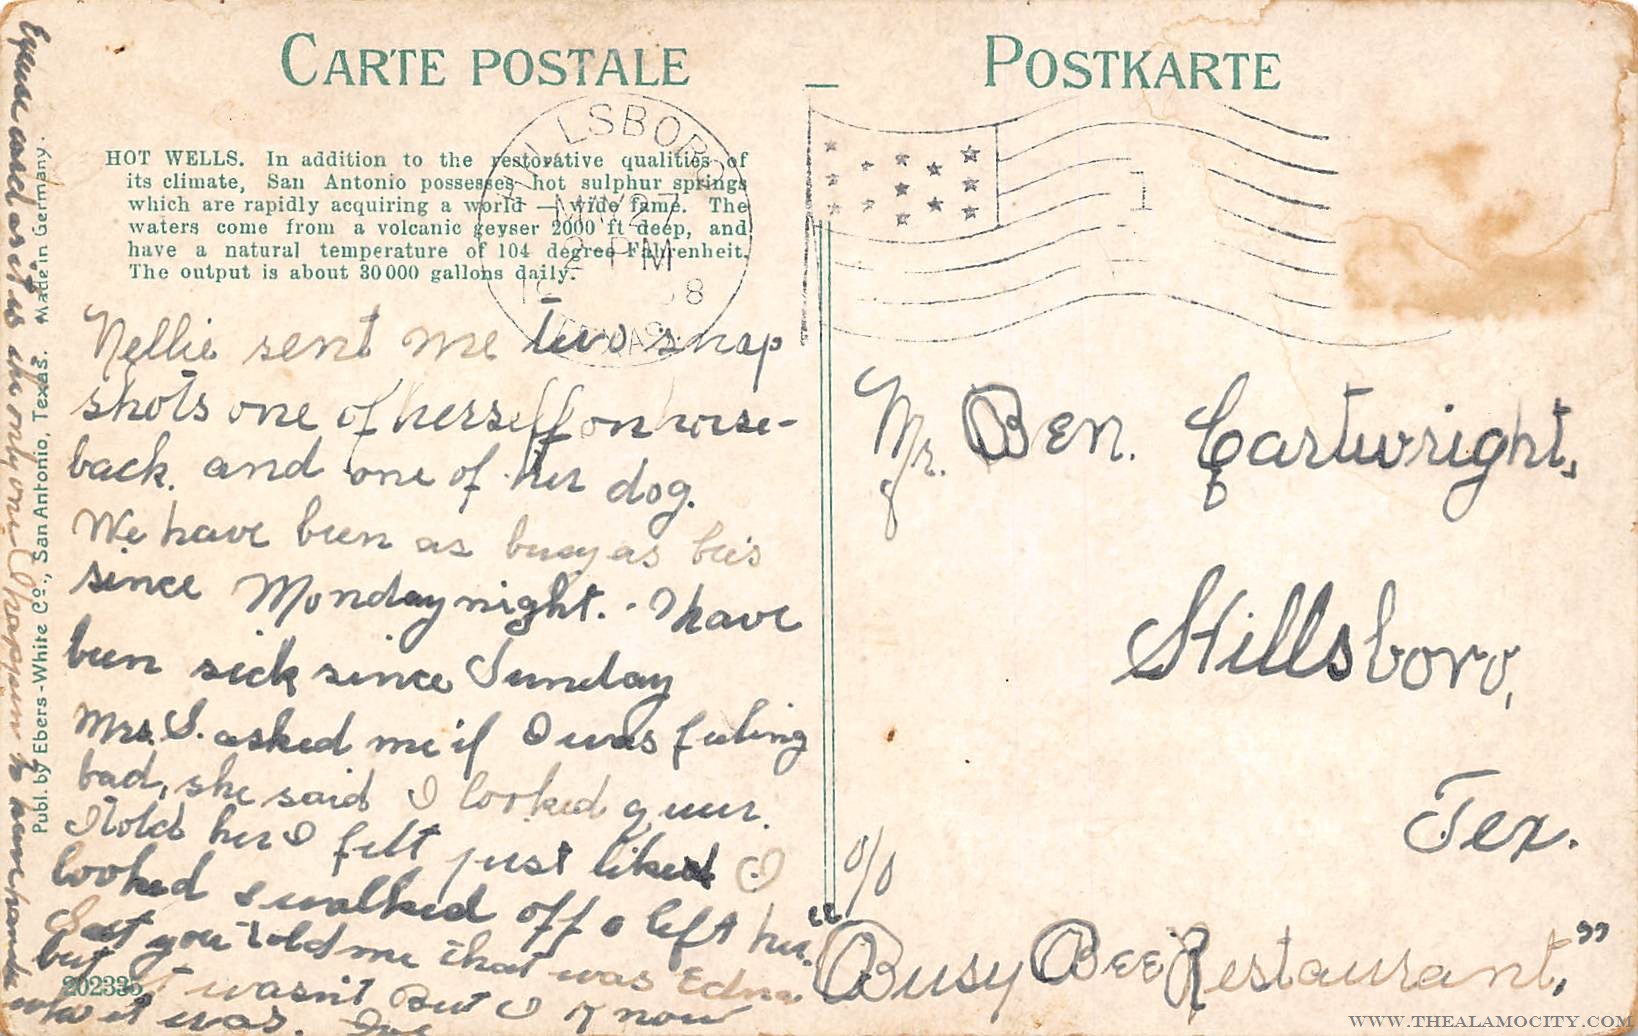 CARTE POSTALE
POSTKARTE
HOT WELLS. In addition to the restorative qualities of
its climate, San Antonio possesses hot sulphur springs
which are rapidly acquiring a world — wide fame. The
waters come from a volcanic geyser 2000 ft deep, and
have a natural temperature of 104 degree Fahrenheit.
The output is about 30000 gallons daily.
HILLSBORO
MAY 27
PM
TEXAS
1
Nellie sent me two snap
shots one of herself on horse-
back. and one of her dog.
We have been as busy as bees
since Monday night. - I have
been sick since Sunday
Mrs. S. asked me if I was feeling
bad, she said I looked queer.
I told her I felt just like I
looked & walked off & left her.
you told me that was Edna
but it wasn't But I know
who it was.
Excuse card as it is the only one I happen to have handy
Publ. by Ebers-White Co., San Antonio, Texas. Made in Germany.
202335
Mr. Ben. Cartwright,
Hillsboro,
Tex.
c/o
"Busy Bee Restaurant,"
WWW.THEALAMOCITY.COM